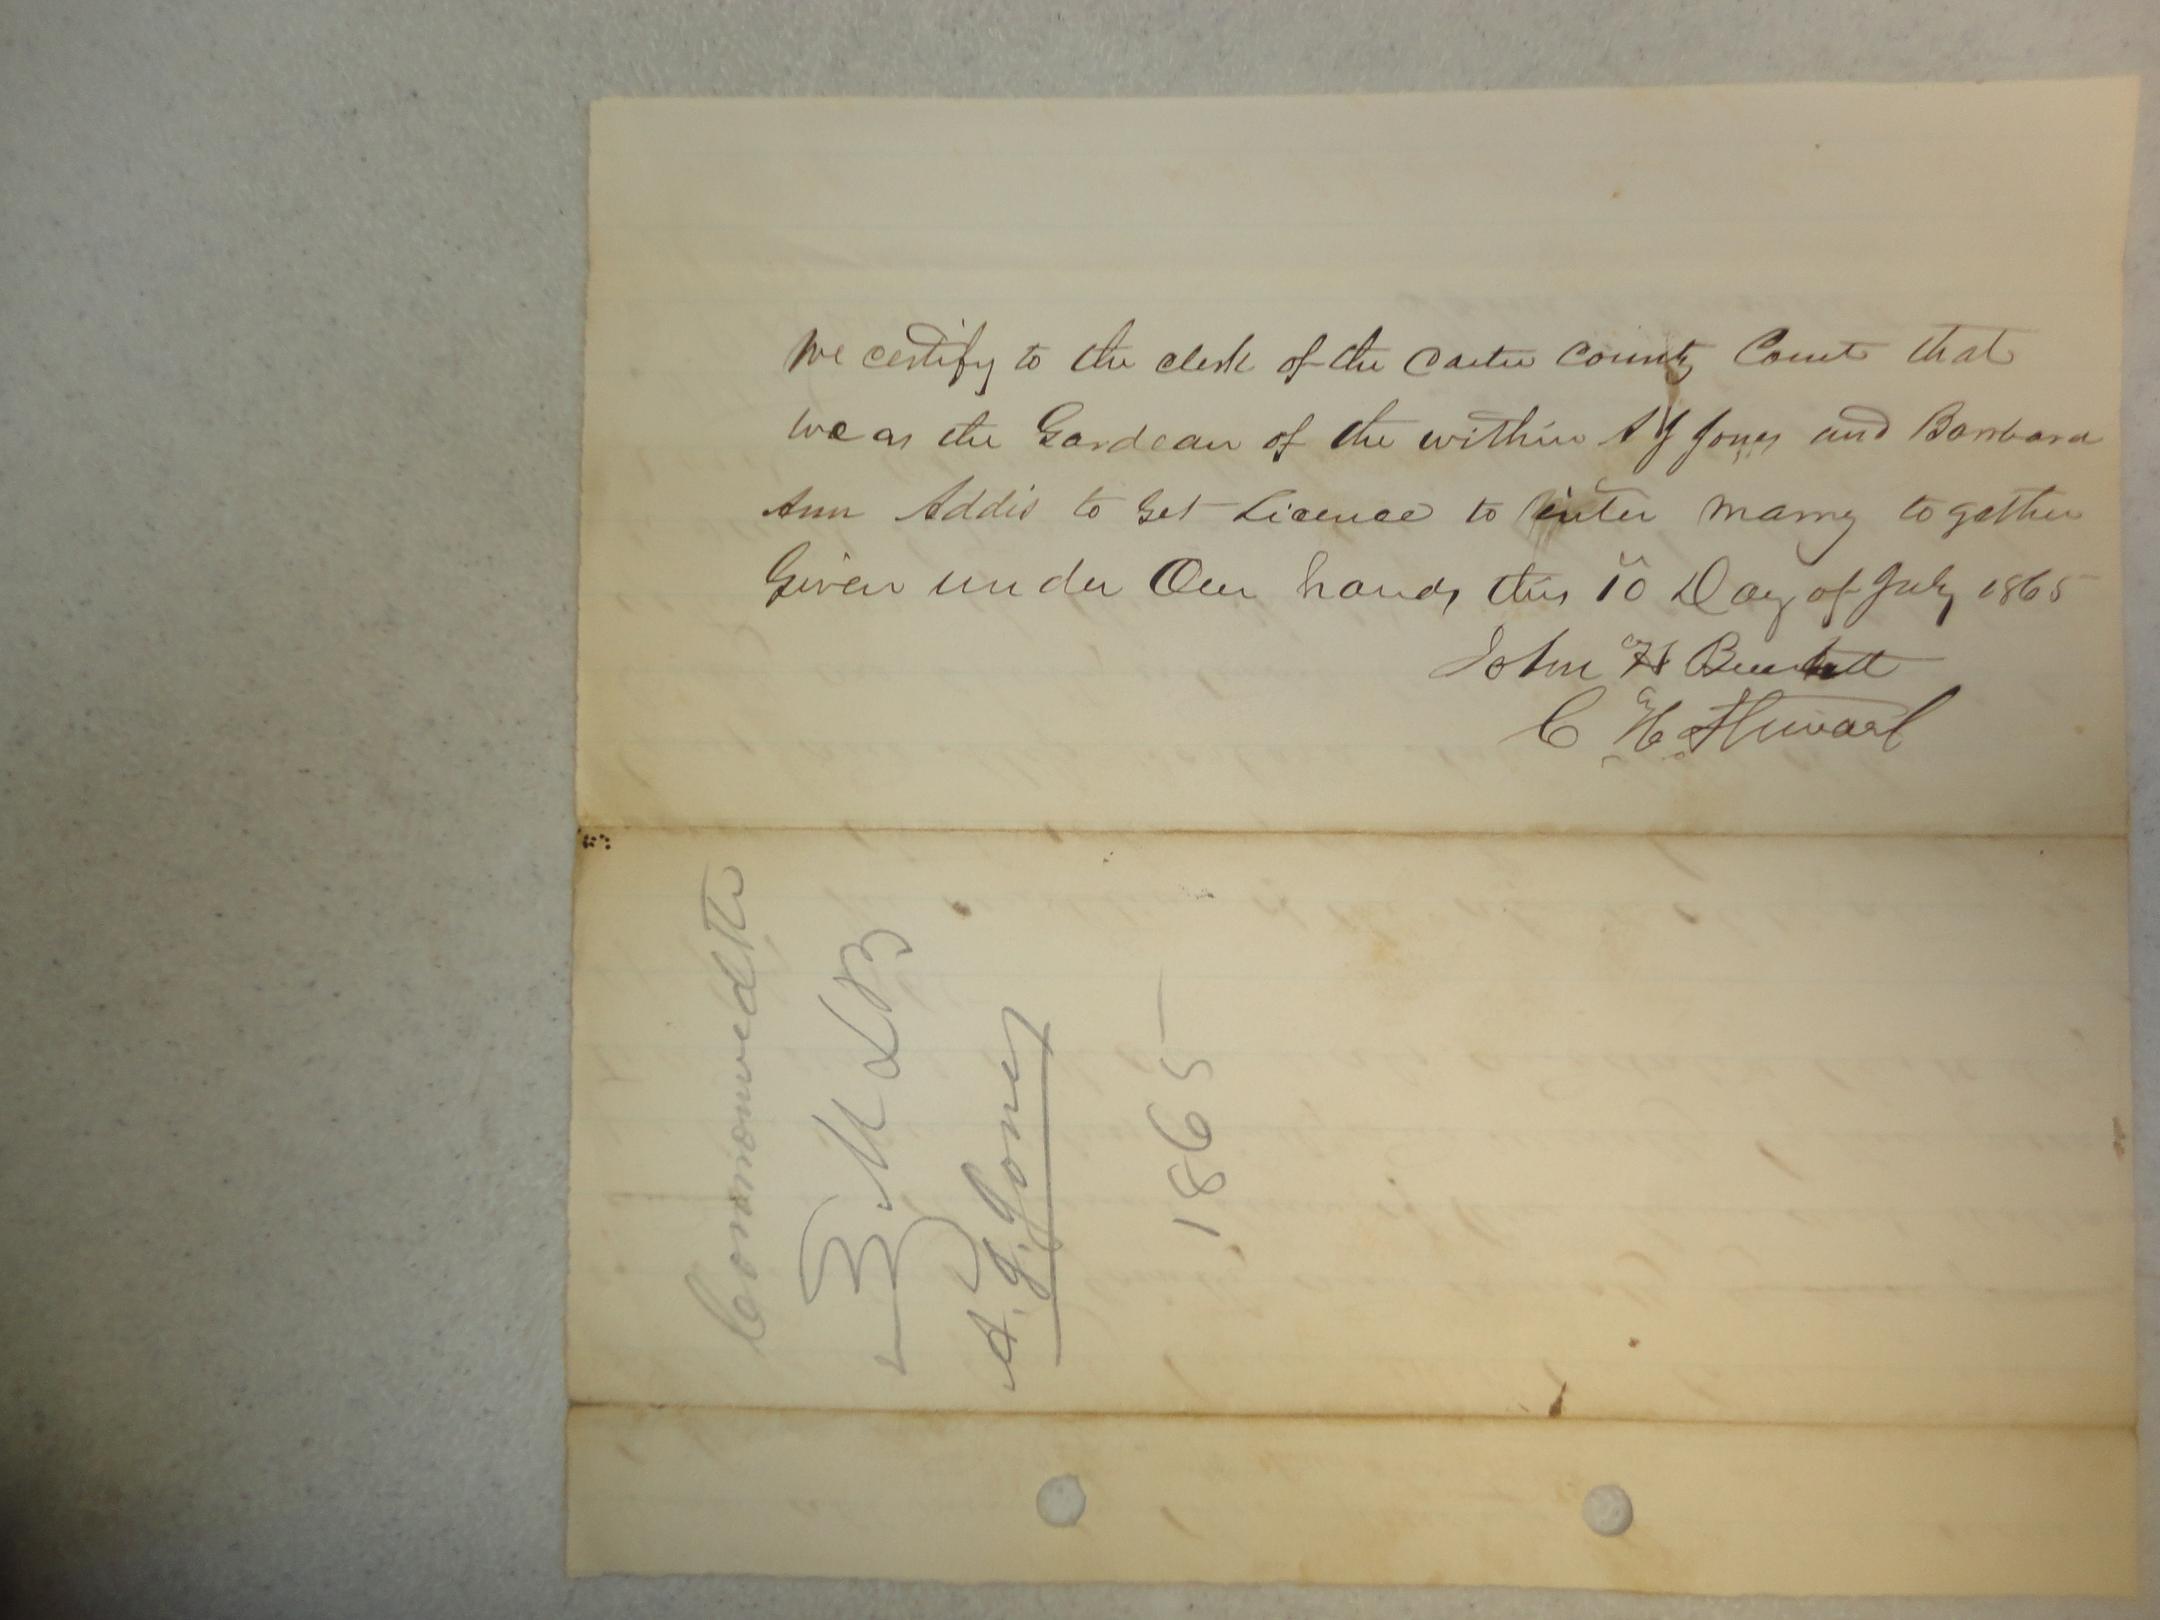 We certify to the clerk of the Carter County Court that
we as the Gardean of the within A J Jones and Barbara
Ann Addis to Get Licence to inter marry togather
Given under Our hands this 10 Day of July 1865
John H
C H Stuwart
Commonwedlth
M L B
A. J. Jones
1865